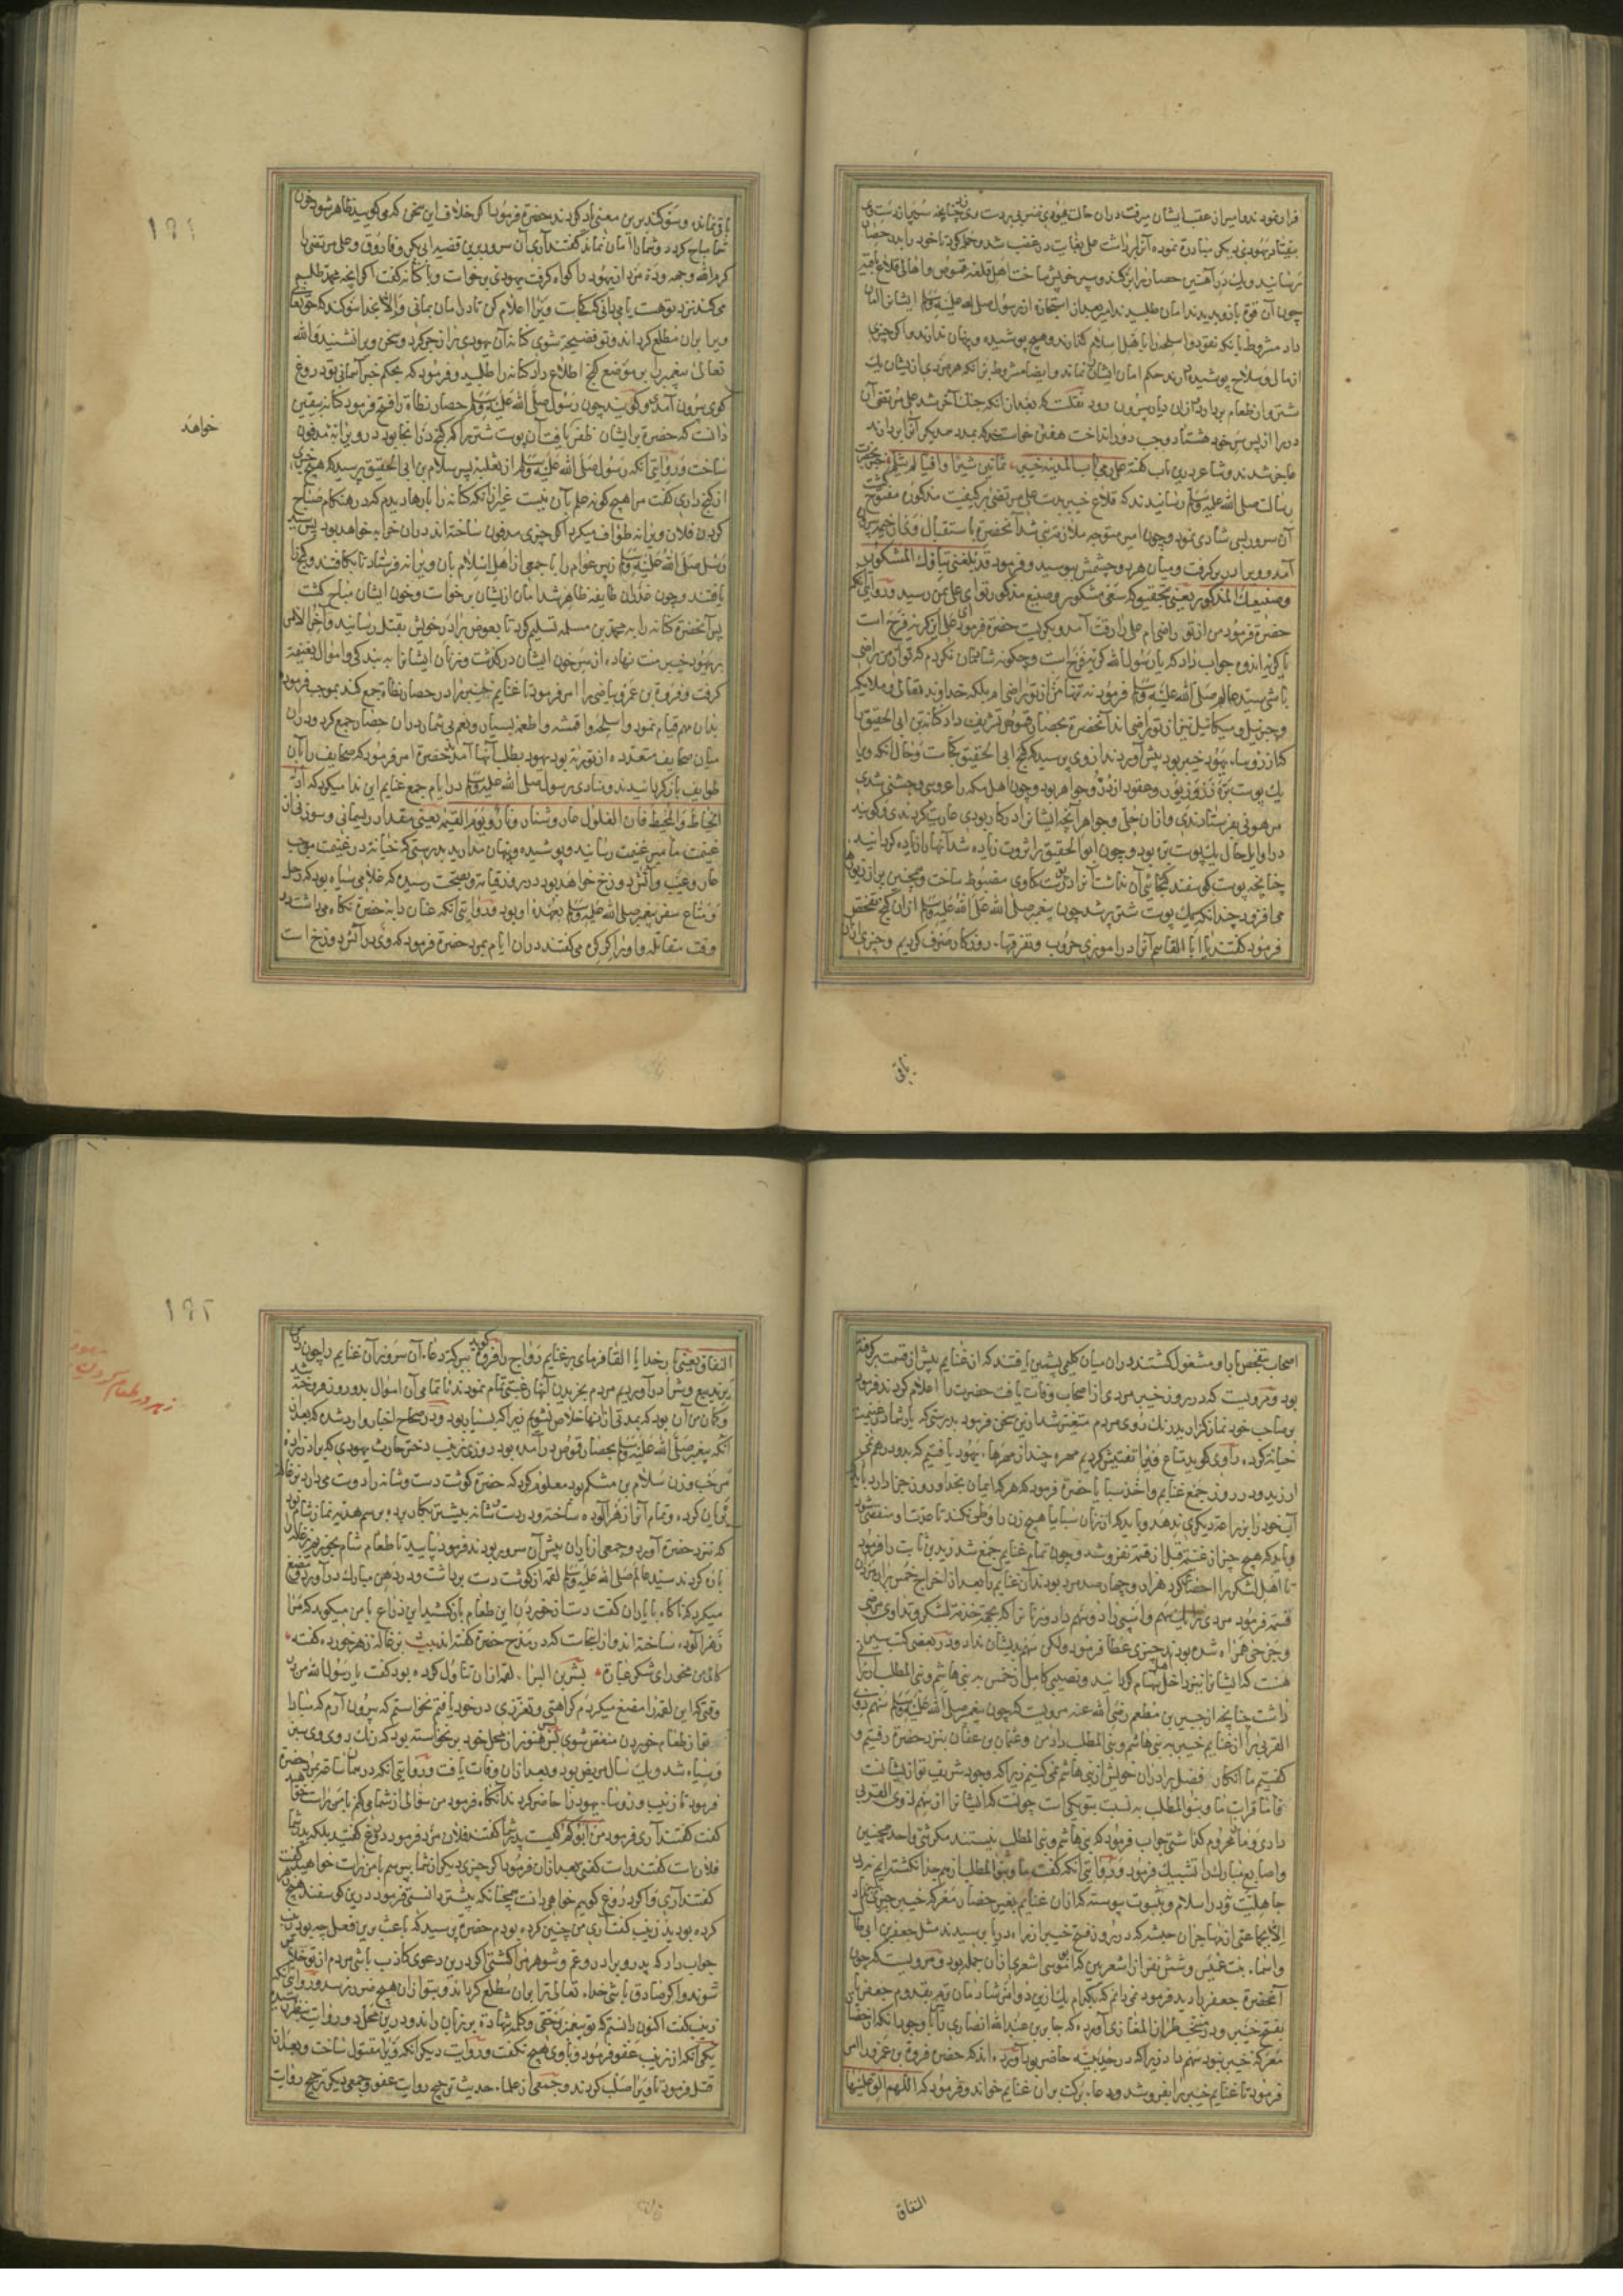 فرار نمودند و امیر از عقب ایشان میرفت در آن حالت یهودی
بیفتاد یهودی دیگر مبادرة نموده آنرا برداشت علی بغایت در غضب شد و حمله کرد تا خود را بدر حصار
رسانید و یک در آهنین حصار را برکند و سپر خویش ساخت اهل قلعه قموص و اهالی قلاع باقیه
چون آن قوة بازو بدیدند امان طلبیدند امیر بعد از استجازه از رسول صلی الله علیه وسلم ایشانرا امان
داد مشروط بآنکه نقود و اسلحه را باهل اسلام گذارند و هیچ پوشیده و پنهان ندارند و اگر چیزی
از مال و سلاح پوشیده دارند حکم امان ایشان نماند و ایضا مشروط بر آنکه هر مردی از ایشان یک
شتروار طعام بردارد و از آن دیار بیرون رود نقلست که بعد از آنکه جنگ آخر شد علی مرتضی آن
در را از پس سر خود هشتاد وجب دور انداخت هفتن خواستند که بمدد یکدیگر آنرا بردارند
عاجز شدند و شاعر درین باب گفته
رسالت صلی الله علیه وسلم رسانیدند که قلاع خیبر بدست علی مرتضی بر کیفیت مذکور مفتوح گشت
آن سرور بسی شادی نمود و چون امیر متوجه ملازمت نبی شد آنحضرة باستقبال وی از خیمه بیرون
آمد و ویرا در بر گرفت و میان هر دو چشمش ببوسید و فرمود قد بلغنی نباؤک المشکور
وصنیعک المذکور یعنی بتحقیق که سعی مشکور و صنیع مذکور تو ای علی بمن رسید
حضرة فرمود من از تو راضی ام علی را رقت آمد و بگریست حضرة فرمود ای علی این گریه فرح است
یا گریه اندوه جواب داد که یا رسول الله گریه فرح است و چگونه شادمان نگردم که تو از من راضی
باشی سید عالم صلی الله علیه وسلم فرمود نه تنها من از تو راضی ام بلکه خداوند تعالی و ملایکه
و جبرئیل و میکائیل نیز از تو راضی اند آنحضرة بحصار قموص تشریف داد کنانه بن ابی الحقیق را
که از رؤسای یهود خیبر بود پیش آوردند از وی پرسید که گنج ابی الحقیق کجاست و حال آنکه ویرا
یک پوست بره زر و زیور و عقود از در و جواهر بود و چون اهل مکه را عروسی و جشنی شدی
مرهونی بفرستادندی و از آن حلی و جواهر آنچه ایشانرا در کار بودی عاریت کردندی و گویند
در اوایل حال یک پوست بره بود و چون ابو الحقیق را ثروت زیاده شد آنها را زیاده گردانید
چنانچه پوست گوسفند گنجایش آن نداشت آنرا در پوست گاوی مضبوط ساخت و همچنین بر آن
می افزود چندانکه یک پوست شتر پر شد چون پیغمبر صلی الله علیه وسلم از آن گنج تفحص
فرمود گفتند یا ابا القاسم آنرا در امور حروب و تفرقهای روزگار صرف کردیم و چیزی از آن
باقی
باقی نمانده و سوگند برین معنی یاد کردند حضرة فرمود اگر خلاف این سخن که میگویید ظاهر شود خون
شما مباح گردد و شما را امان نماند گفتند آری آن سرور برین قضیه ابی بکر و فاروق و علی مرتضی را
کرم الله وجهه و ده مرد از یهود را گواه گرفت یهودی برخاست و با کنانه گفت اگر آنچه محمد طلب
می کند نزد تو هست یا می دانی که کجاست ویرا اعلام کن تا در امان بمانی و الا بخدا سوگند که حق تعالی
ویرا بر آن مطلع گرداند و تو فضیحة شوی کنانه آن یهودی را زجر کرد و سخن ویرا نشنید و الله
تعالی پیغمبر را بر موضع گنج اطلاع داد کنانه را طلبید و فرمود که بحکم خبر آسمانی تو دروغ
گوی بیرون آمدی و گویند چون رسول صلی الله علیه وسلم حصار نطاة را فتح فرمود کنانه بیقین
دانست که حضرة بر ایشان ظفر یافت آن پوست شتر را که گنج در آنجا بود در ویرانه مدفون
ساخت و در روایتی آنکه رسول صلی الله علیه وسلم از ثعلبه پسر سلام بن ابی الحقیق پرسید که هیچ خبری
از گنج داری گفت مرا هیچ گونه علم بآن نیست غیر از آنکه کنانه را بارها دیدم که در هنگام صباح
گرد فلان ویرانه طواف میکرد اگر چیزی مدفون ساخته اند در آن خرابه خواهد بود پس سید
رسل صلی الله علیه وسلم زبیر عوام را با جمعی از اهل اسلام بآن ویرانه فرستاد تا بکافتند و گنج را
یافتند و چون غدر آن طایفه ظاهر شد امان از ایشان برخاست و خون ایشان مباح گشت
پس آنحضرة کنانه را به محمد بن مسلمه تسلیم کرد تا بعوض برادر خویش بقتل رسانید و آخر الامر
بر یهود خیبر منت نهاده از سر خون ایشان درگذشت و زنان ایشانرا به بندگی و اموال بغنیمة
گرفت و فروة بن عمرو بیاضی را امر فرمود تا غنایم خیبر را در حصار نطاة جمع کند بموجب فرموده
بدان مهم قیام نمود و اسلحه و اقمشه و اطعمه بسیار و نعم بی شمار در آن حصار جمع کرد و در آن
میان صحایف متعدده از توریة بود یهود بطلب آنها آمدند حضرة امر فرمود که صحایف را بآن
طوایف بازگردانیدند و منادی رسول صلی الله علیه وسلم در ایام جمع غنایم این ندا میکرد که ادوا
الخیاط والمخیط فان الغلول عار وشنار ونار یوم القیمة یعنی مقدار ریسمانی و سوزنی از
غنیمت بامیر غنیمت رسانید و پوشیده و پنهان مدارید بدرستی که خیانة در غنیمت موجب
عار و عیب و آتش دوزخ خواهد بود در روز قیامة و بصحت رسیده که غلامی سیاه بود که رحل
و متاع سفر پیغمبر صلی الله علیه وسلم بعهده او بود و در روایتی آنکه عنان دابه حضرة نگاه می داشت در
وقت مقاتله و او را کرکره می گفتند در آن ایام بمرد حضرة فرمود که وی در آتش دوزخ است
۱۹۱
خواهد
اصحاب بتفحص بار او مشغول گشتند در آن میان گلیمی پشمین یافتند که از غنایم پیش از قسمت برگرفته
بود و مرویست که در روز خیبر مردی از اصحاب وفات یافت حضرت را اعلام کردند فرمود
بر صاحب خود نماز گزارید رنگ روی مردم متغیر شد ازین سخن فرمود بدرستی که یار شما در غنیمت
خیانة کرده راوی گوید متاع ویرا تفتیش کردیم مهره چند از مهرهای یهود یافتیم که بدو درهم نمی
ارزید و در روز جمع غنایم و اخذ سبایا حضرة فرمود که هر که ایمان بخدا و روز جزا دارد باید که
آب خود را بزراعت دیگری ندهد و باید که از زنان سبایا هیچ زن را وطی نکند تا عدت او منقضی شود
و باید که هیچ چیز از غنیمة قبل از قسمة نفروشد و چون تمام غنایم جمع شد زید بن ثابت را فرمود
تا اهل لشکر را احصا کرد هزار و چهار صد مرد بودند آن غنایم را بعد از اخراج خمس برایشان
قسمة فرمود مردی را یک سهم و اسبی را دو سهم داد و زنانی را که بجهة خدمة لشکر و تداوی مرضی
و جرحی همراه شده بودند چیزی عطا فرمود ولیکن سهم بدیشان نداد و در بعضی کتب سیر
هست که ایشانرا نیز داخل سهام گردانید و نصیبی کامل از خمس به بنی هاشم و بنی المطلب ارزانی
داشت چنانچه از جبیر بن مطعم رضی الله عنه مرویست که چون پیغمبر صلی الله علیه وسلم سهم ذوی
القربی را از غنایم خیبر به بنی هاشم و بنی المطلب داد من و عثمان بن عفان بنزد حضرة رفتیم و
گفتیم ما انکار فضل برادران خویش از بنی هاشم نمی کنیم زیرا که وجود شریف تو از ایشانست
فاما قرابت ما و بنو المطلب به نسبت بتو یکیست چونست که ایشانرا از سهم ذوی القربی
دادی و ما محروم گذاشتی جواب فرمود که بنی هاشم و بنی المطلب نیستند مگر شئ واحد همچنین
و اصابع مبارک را تشبیک فرمود و در روایتی آنکه گفت ما و بنو المطلب از هم جدا نگشته ایم نه در
جاهلیت و نه در اسلام و بثبوت پیوسته که از آن غنایم بغیر حضار معرکه خیبر چیزی نداد
الا بجماعتی از مهاجران حبشه که در روز فتح خیبر از راه دریا برسیدند مثل جعفر بن ابی طالب
و اسماء بنت عمیس و شش نفر از اشعریین که ابو موسی اشعری از آن جمله بود و مرویست که چون
آنحضرة جعفر را دید فرمود نمی دانم که بکدام یک ازین دو امر شادمان ترم بقدوم جعفر یا
بفتح خیبر و در منتخب طراز المغازی آورده که جابر بن عبد الله انصاری را با وجود آنکه از حضار
معرکه خیبر نبود سهم داد زیرا که در حدیبیه حاضر بود آورده اند که حضرة فروة بن عمرو را امر
فرمود تا غنایم خیبر را بفروشد و دعاء برکت بر آن غنایم خواند و فرمود که اللهم الق علیها
النفاق
النفاق یعنی بار خدایا القا فرمای بر غنایم رواج را فروة گوید ببرکة دعاء آن سرور آن غنایم را چون در
معرض بیع و شرا در آوردیم مردم بخریدن آنها رغبتی تمام نمودند تا تمامی آن اموال بدو روز فروخته شد
و گمان من آن بود که بمدتی از آنها خلاص نشویم زیرا که بسیار بود و در صحاح اخبار وارد شده که بعد از
آنکه پیغمبر صلی الله علیه وسلم بحصار قموص در آمده بود روزی زینب دختر حارث یهودی که برادر زاده
مرحب و زن سلام بن مشکم بود معلوم کرد که حضرة گوشت دست و شانه را دوست می دارد بزغاله
بریان کرده و تمام آنرا زهر آلود ساخته و در دست و شانه بیشتر بکار برده برسم هدیه نماز شام بود
که نزد حضرت آورد و جمعی از یاران پیش آن سرور بودند فرمود بیایید تا طعام شام بخوریم
باز کردند سید عالم صلی الله علیه وسلم لقمه از گوشت دست برداشت و در دهن مبارک در آورد و مضغ
میکرد که ناگاه با یاران گفت دست از خوردن این طعام باز کشید این ذراع با من میگوید که مرا
زهر آلود ساخته اند و از اینجاست که در مدح حضرة گفته اند بیت بزغاله زهر خورده گفته
کز من مخور ای شکر عبارة بشر بن البرا لقمه از آن تناول کرده بود گفت یا رسول الله من در
وقتی که این لقمه را مضغ میکردم کراهتی و تنفری در خود یافتم نخواستم که بیرون آرم که مبادا
شما از طعام خوردن منغض شوی بشر هنوز از محل خود بر نخواسته بود که رنگ روی وی سبز
و سیاه شد و یک سال مریض بود و بعد از آن وفات یافت و در روایتی آنکه در همان ساعة بمرد حضرة
فرمود تا زینب و رؤسای یهود را حاضر کردند آنگاه فرمود من سؤالی از شما می کنم با من راست خواهید
گفت گفتند آری فرمود من ابوکم کیست پدر شما گفتند فلان مرد فرمود دروغ گفتید بلکه پدر شما
فلانست گفتند راست گفتی بعد از آن فرمود اگر چیزی دیگر از شما پرسم با من راست خواهید گفت
گفتند آری و اگر دروغ گوییم خواهی دانست همچنانکه پیشتر دانستی فرمود درین گوسفند هیچ زهر
کرده بودید زینب گفت آری من چنین کرده بودم حضرة پرسید که باعث برین فعل چه بود زینب
جواب داد که پدر و برادر و عم و شوهر مرا کشتی اگر درین دعوی کاذب باشی مردم از تو خلاص
شوند و اگر صادق باشی خدای تعالی ترا بر آن مطلع گرداند و بتو از آن هیچ ضرر نرسد و در روایتی آنکه
زینب گفت اکنون دانستم که تو پیغمبر بحقی و کلمه شهادة بر زبان راند و درین محل دو روایت بنظر رسیده
یکی آنکه از زینب عفو فرمود و با وی هیچ نگفت و در روایت دیگر آنکه ویرا مقتول ساخت و بعد از
قتل فرمود تا ویرا صلب کردند و جمعی از علماء حدیث ترجیح روایت عفو و جمعی دیگر ترجیح روایت
۱۹۲
زهر در طعام کردن یهود